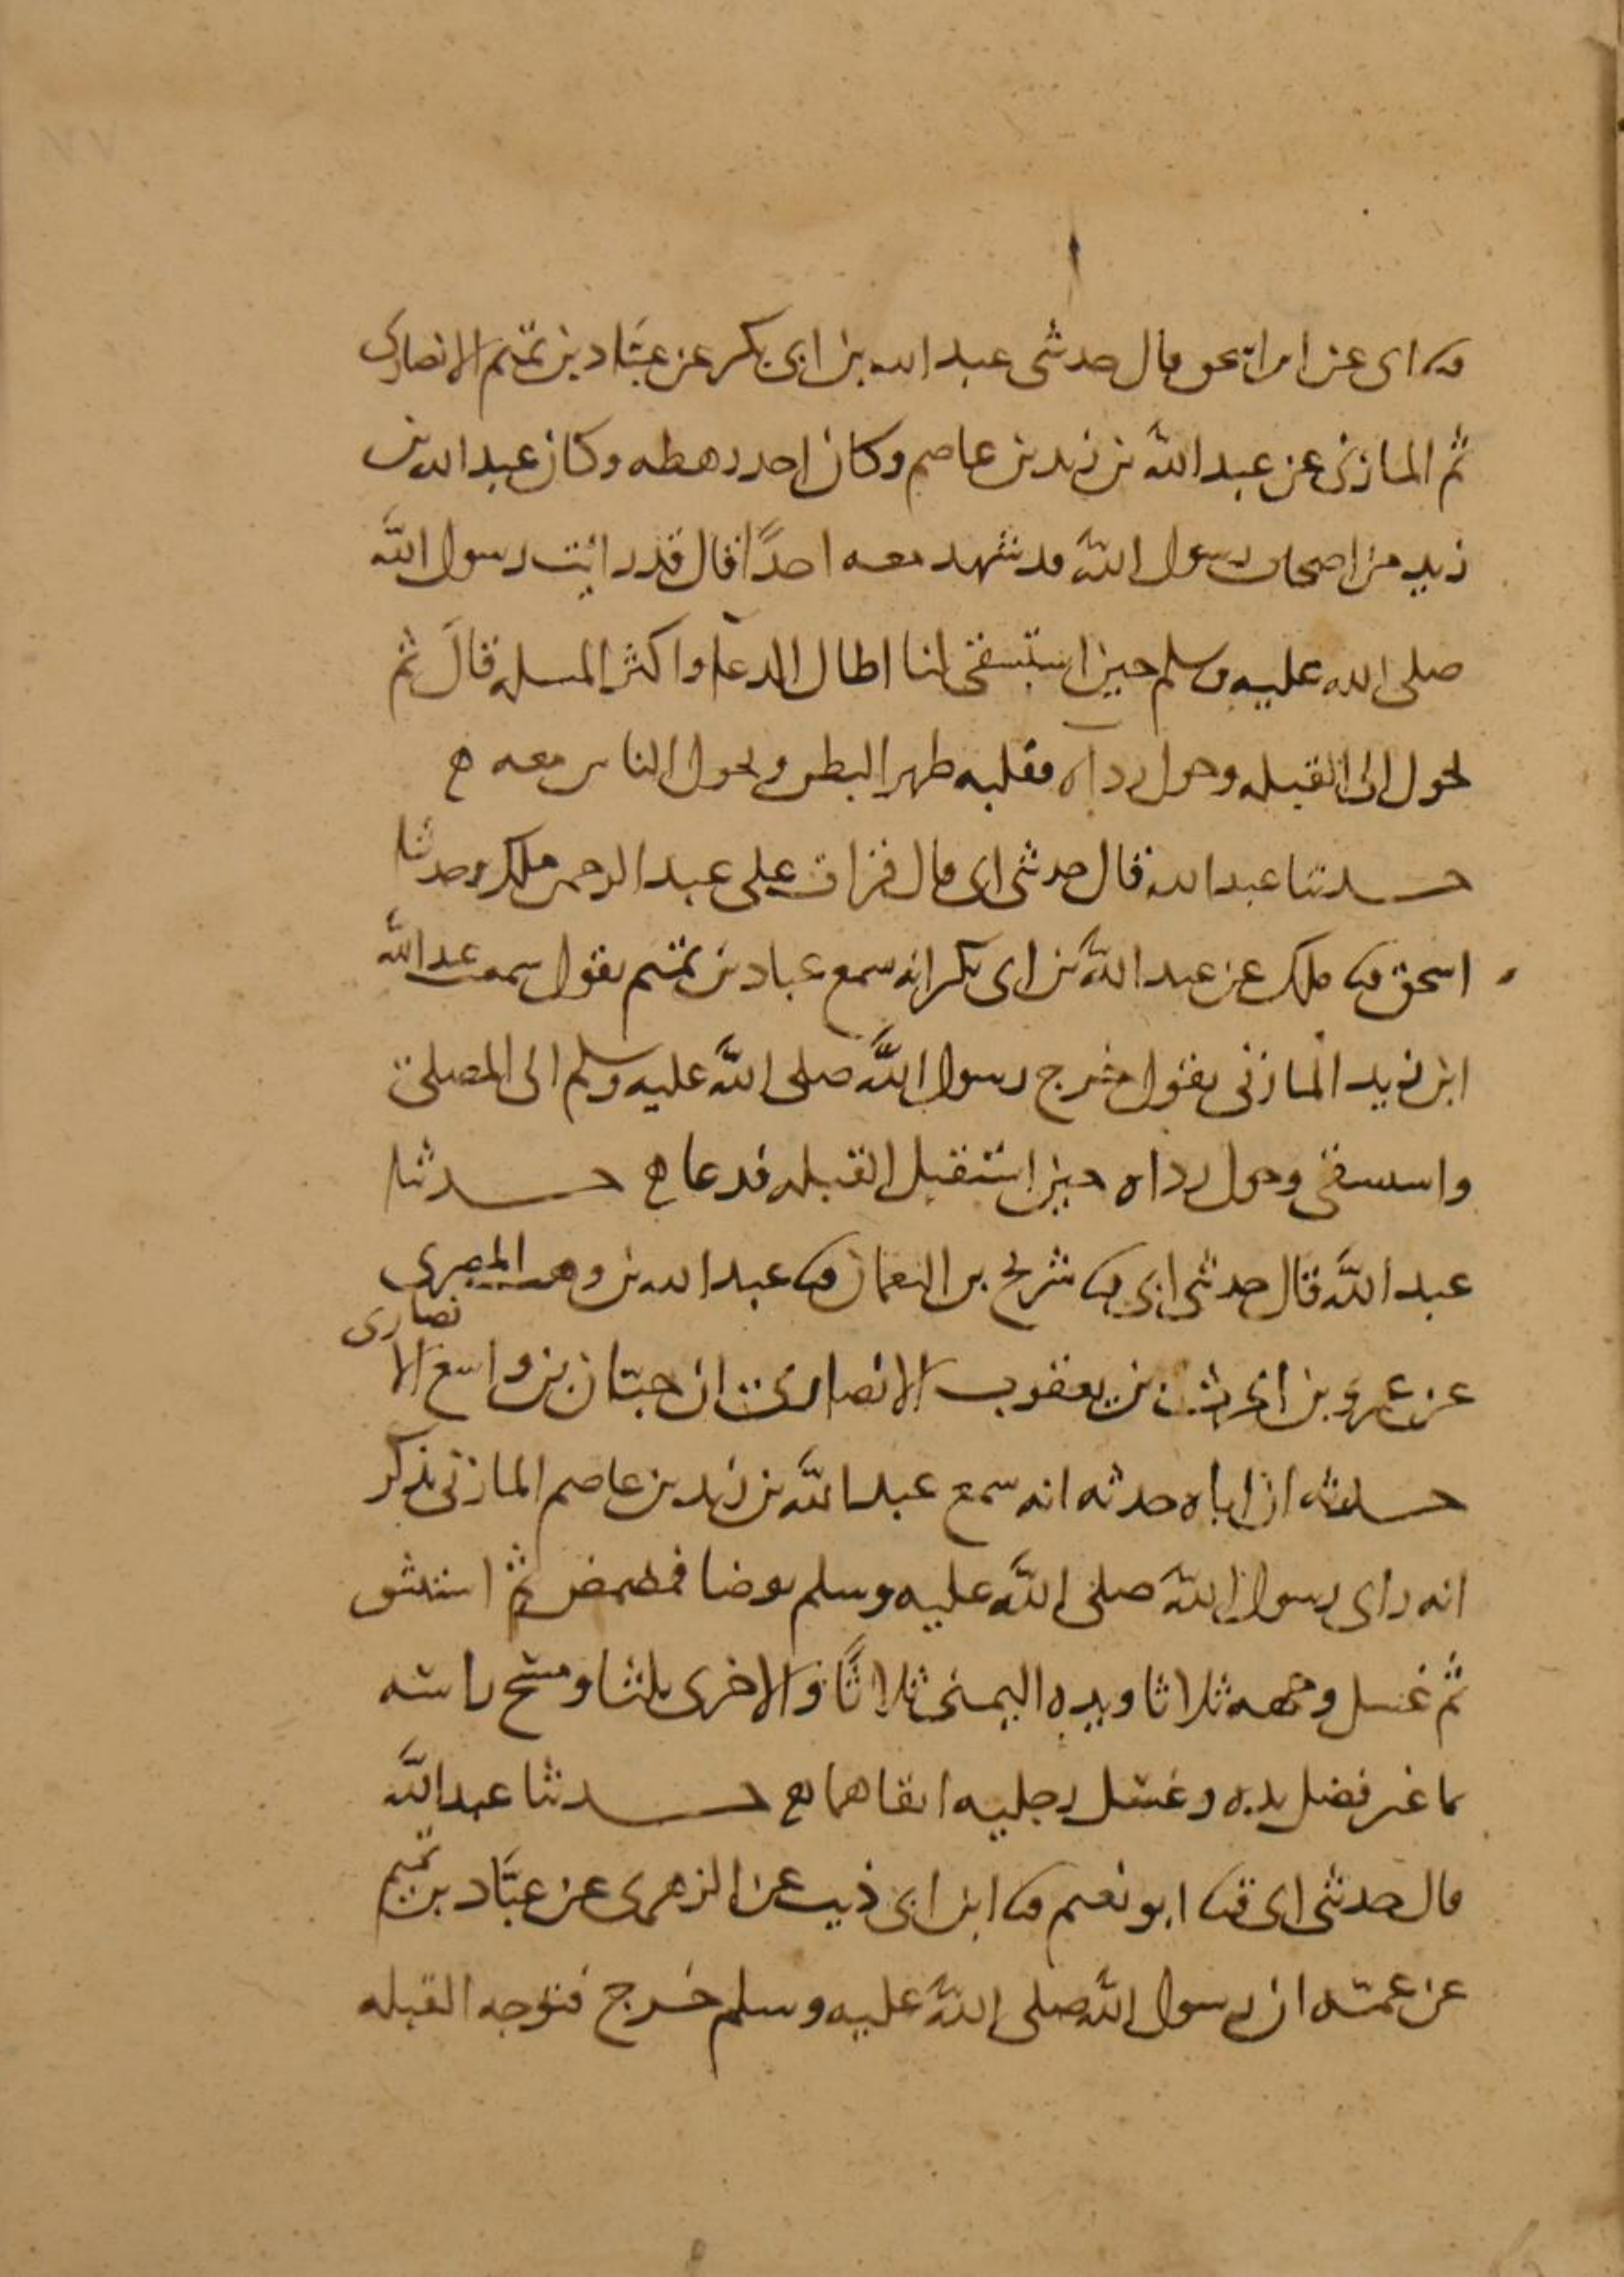 ثنا ابى عن ابن اسحق قال حدثنى عبد الله بن ابى بكر عن عبَّاد بن تميم الانصارى
ثم المازنى عن عبد الله بن زيد بن عاصم وكان احد رهطه وكان عبد الله بن
زيد من اصحاب رسول الله قد شهد معه احدًا قال قد رايت رسول الله
صلى الله عليه وسلم حين استسقى لنا اطال الدعا واكثر المسله قال ثم
تحول الى القبله وحول رداه فقلبه ظهرا لبطن وتحول الناس معه
حدثنا عبد الله قال حدثنى ابى قال قرات على عبد الرحمن ملك وحدثنا
اسحق ثنا ملك عن عبد الله بن ابى بكر انه سمع عباد بن تميم يقول سمعت عبد الله
ابن زيد المازنى يقول خرج رسول الله صلى الله عليه وسلم الى المصلى
واستسقى وحول رداه حين استقبل القبله قد عا حدثنا
عبد الله قال حدثنى ابى ثنا شريح بن النعمان ثنا عبد الله بن وهب المصرى
عن عمرو بن الحرث بن يعقوب الانصارى ان حبان بن واسع الانصارى
حدثه ان اباه حدثه انه سمع عبد الله بن زيد بن عاصم المازنى يذكر
انه راى رسول الله صلى الله عليه وسلم توضا فمضمض ثم استنشق
ثم غسل وجهه ثلاثا ويده اليمنى ثلاثًا والاخرى ثلثا ومسح راسه
بما غير فضل يده وغسل رجليه انقاهما حدثنا عبد الله
قال حدثنى ابى ثنا ابو نعيم ثنا ابن ابى ذيب عن الزهرى عن عبَّاد بن تميم
عن عمه ان رسول الله صلى الله عليه وسلم خرج فتوجه القبله